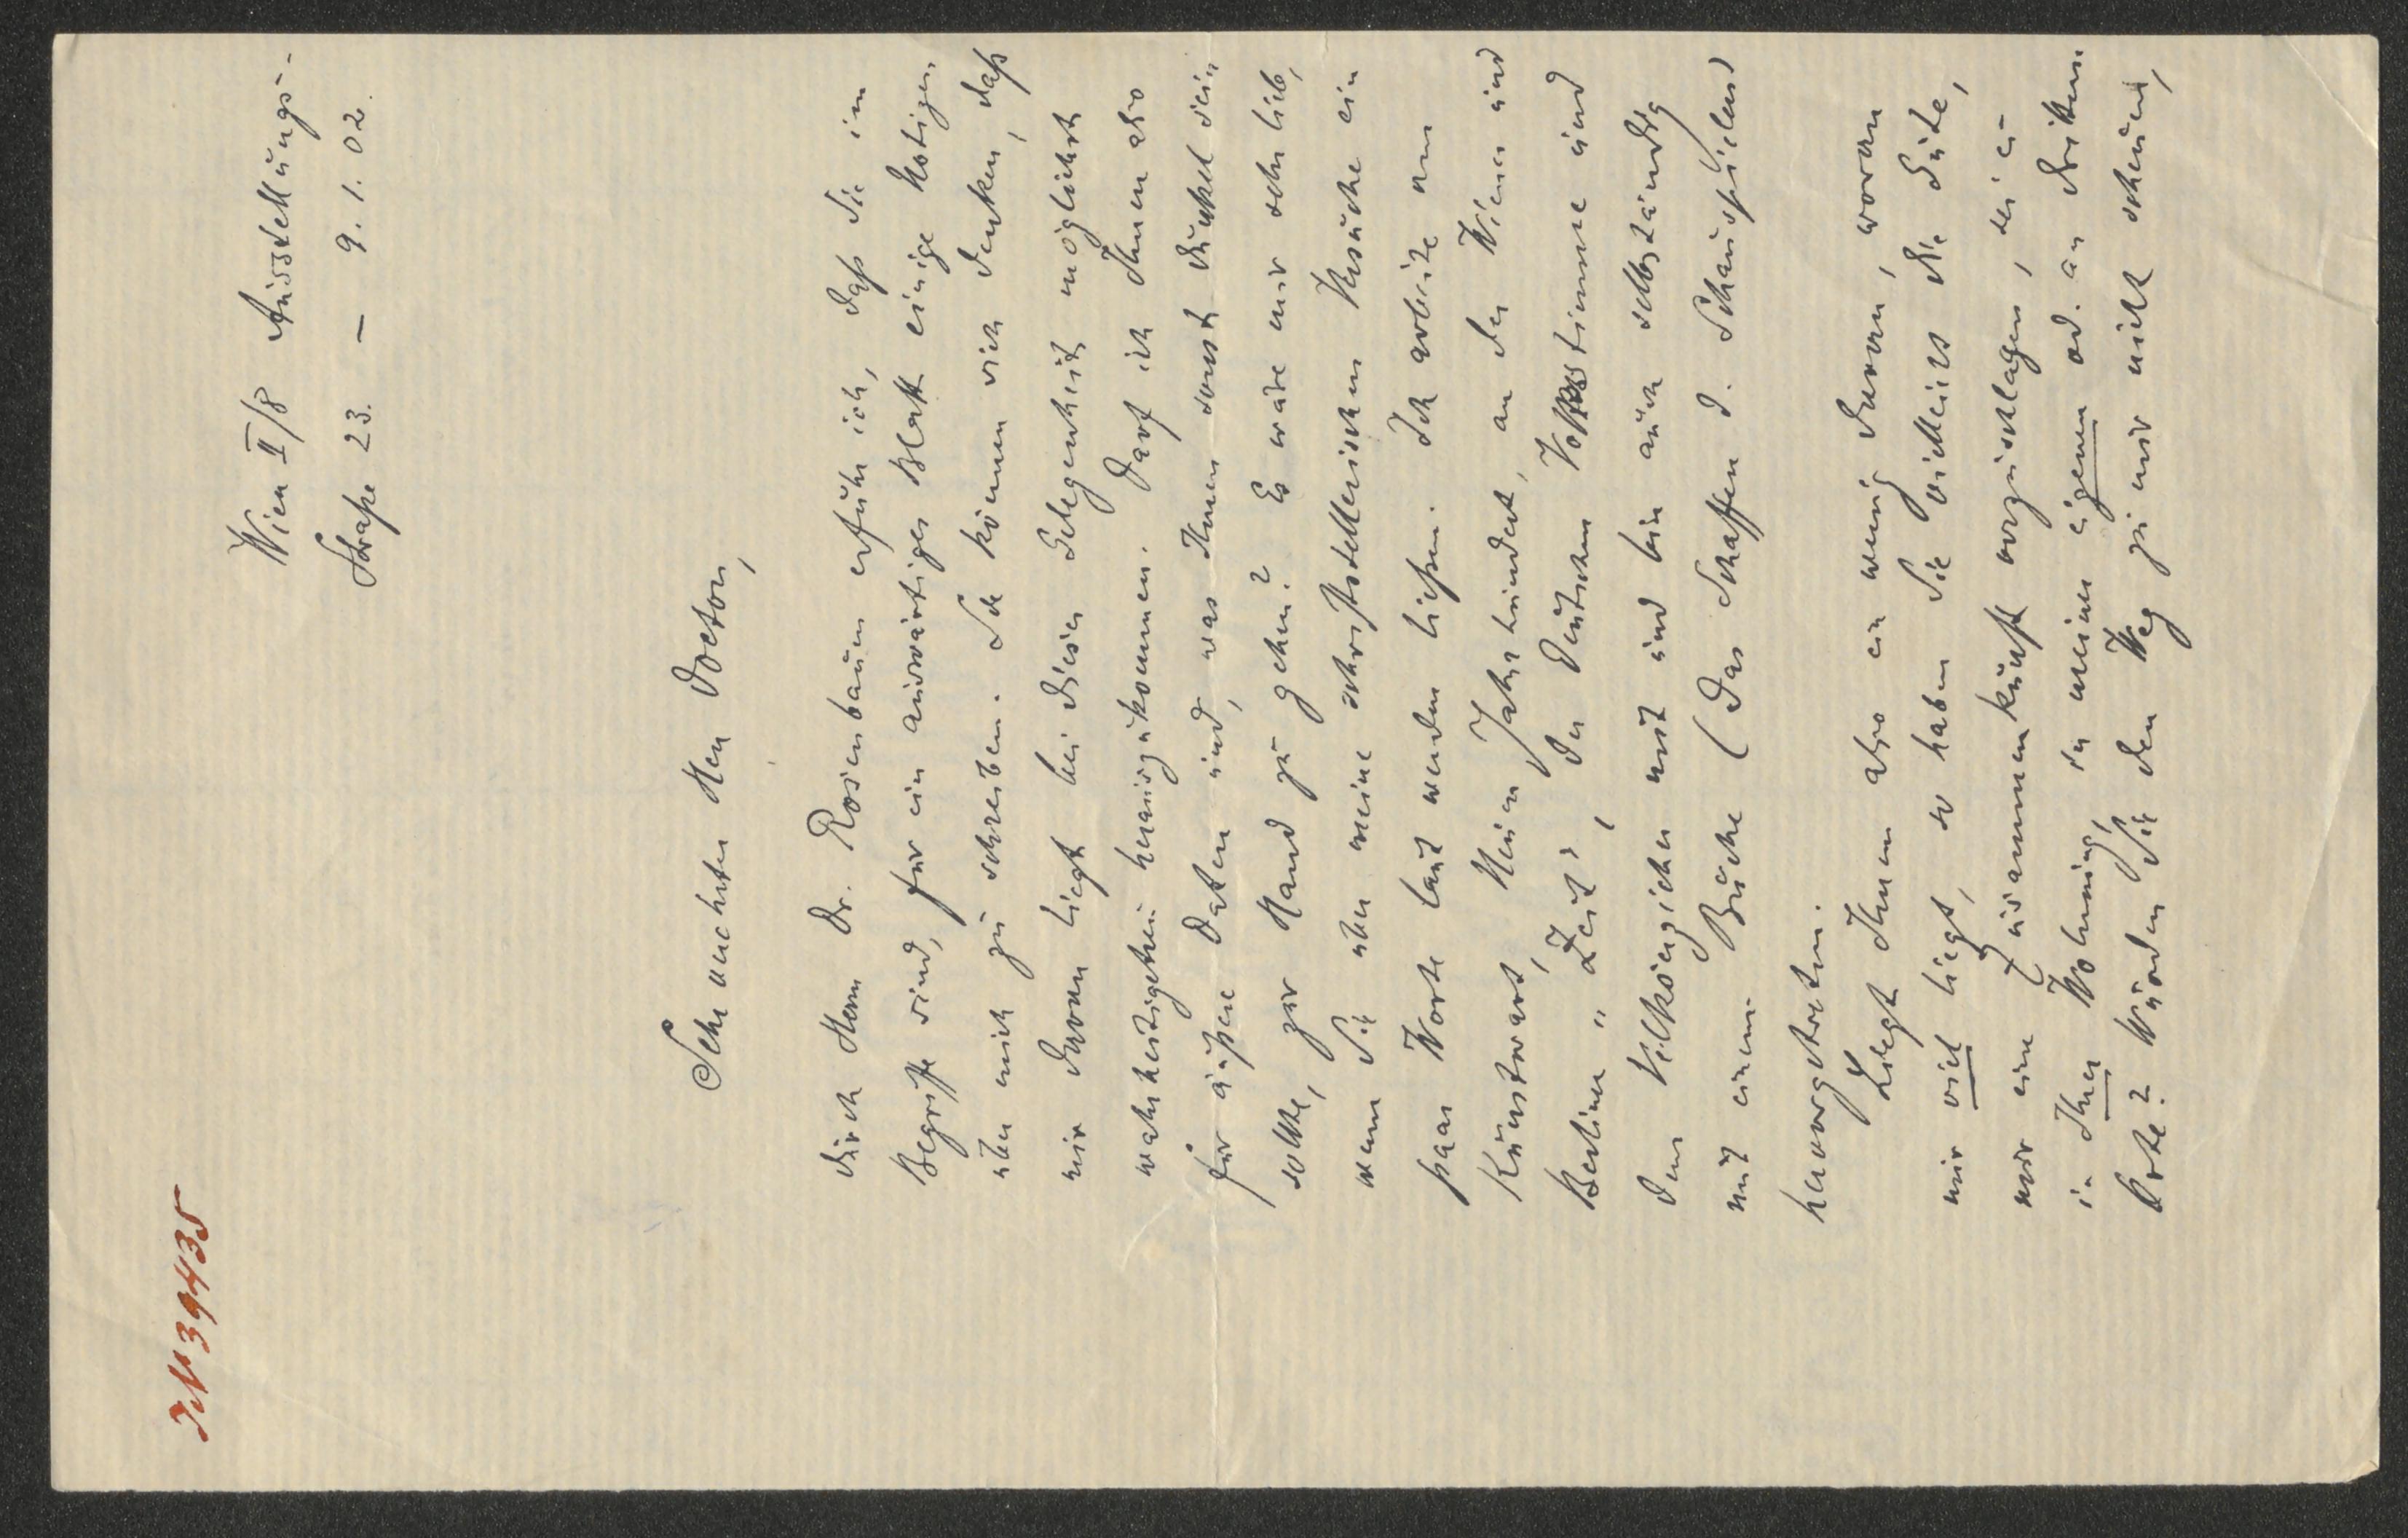 IN 39435
Wien II/8 Ausstellungs-
Straße 23. – 9. 1. 02.
Sehr verehrter Herr Doctor,
durch Herrn Dr. Rosenbaum erfuhr ich, daß Sie im
Begriffe sind, für ein auswärtiges Blatt einige Notizen
über mich zu schreiben. Sie können sich denken, daß
mir daran liegt bei dieser Gelegenheit möglichst
wahrheitsgetreu herauszukommen. Darf ich Ihnen also
für äußere Daten und, was Ihnen sonst dunkel sein
sollte, zur Hand zu gehen? Es wäre mir sehr lieb,
wenn Sie über meine schriftstellerischen Versuche ein
paar Worte laut werden ließen. Ich arbeite am
Kunstwart, Neuen Jahrhundert, an der Wiener und
Berliner „Zeit“, der Deutschen Volksstimme und
dem Vilkösigichen mit und bin auch selbständig
mit einem Buche (Das Schaffen d. Schauspielers)
hervorgetreten.
Liegt Ihnen also ein wenig daran, woran
mir viel liegt, so haben Sie vielleicht die Güte,
mir eine Zusammenkunft vorzuschlagen, sei es
in Ihrer Wohnung, in meiner eigenen od. an drittem
Orte? Würden Sie den Weg zu mir nicht scheuen,